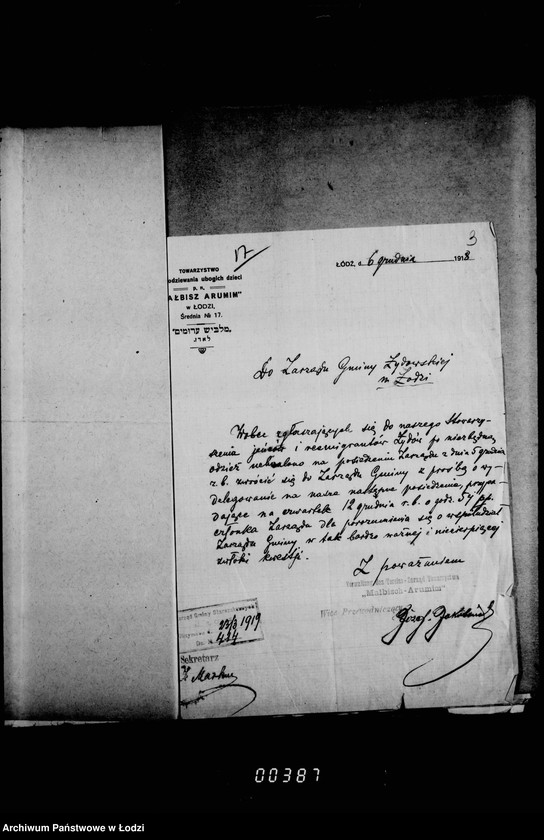 3
17
TOWARZYSTWO
odziewania ubogich dzieci
p. n.
"AŁBISZ ARUMIM"
w ŁODZI,
Średnia № 17.
"מלביש ערומים"
לאדז.
ŁÓDZ, d. 6 grudnia 1918
Do Zarządu Gminy Żydowskiej
w Łodzi
Wobec zgłaszających się do naszego Stowarzy-
szenia jeńców i reemigrantów Żydów po niezbędną
odzież uchwalono na posiedzeniu Zarządu z dnia 5 grudnia
r. b. zwrócić się do Zarządu Gminy z prośbą o wy-
delegowanie na nasze następne posiedzenie, przypa-
dające na czwartek 12 grudnia r. b. o godz. 5½ pp.
członka Zarządu dla porozumienia się o współudział
Zarządu Gminy w tak bardzo ważnej i niecierpiącej
zwłoki kwestji.
Z poważaniem
"Malbisch-Arumim"
Vice Przewodniczący
23/3 1919
424
Sekretarz
00387
Archiwum Państwowe w Łodzi